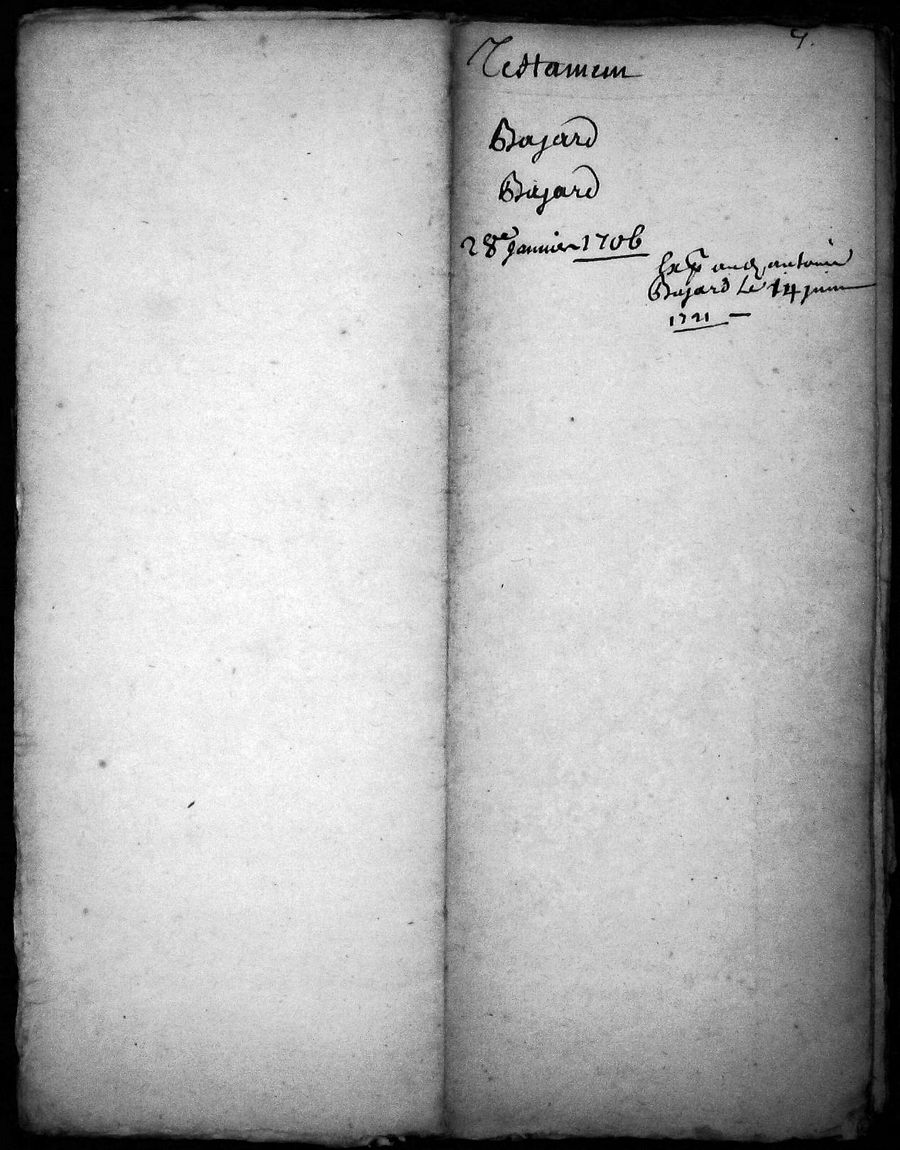 7.
Testament
Bajard
Bajard
28e janvier 1706
antoine
Bajard Le 14 juin
1721